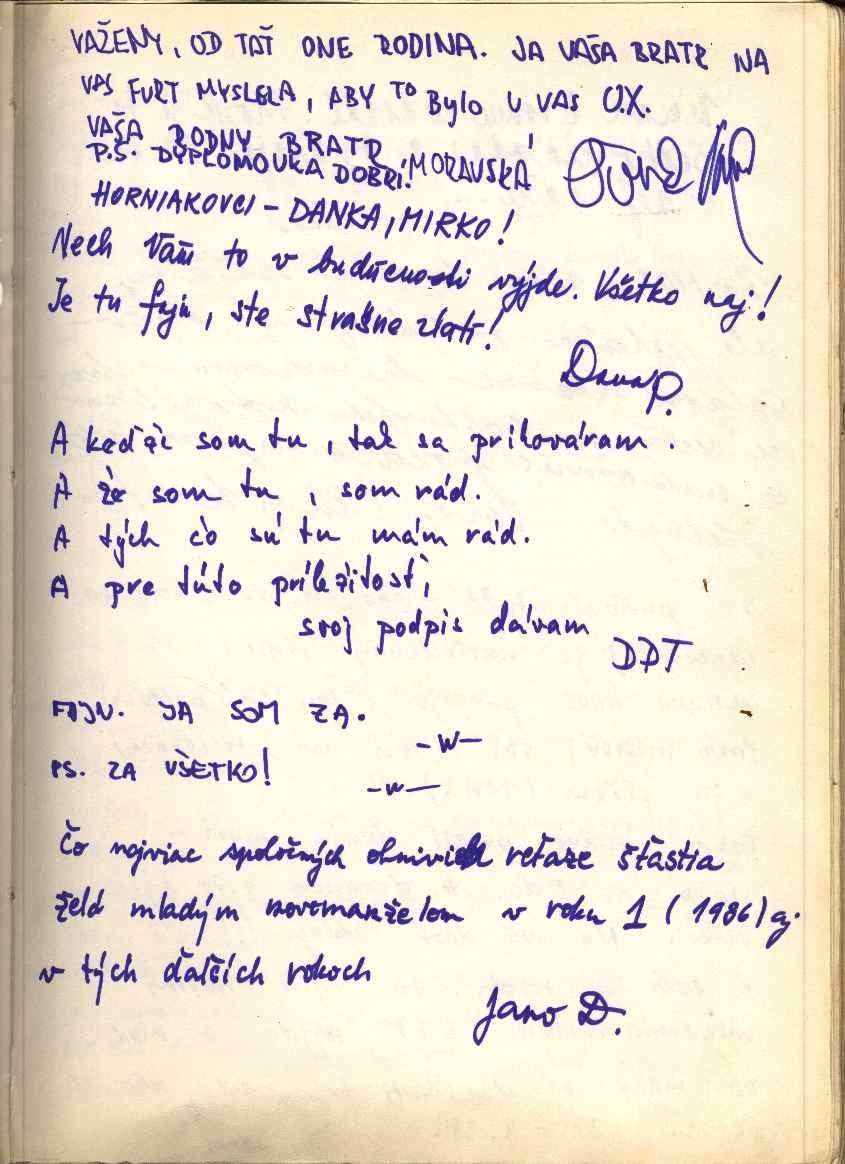 VAŽENY, OD TAŤ ONE RODINA. JA VAŠA BRATR NA
VAS FURT MYSLELA, ABY TO BYLO U VAS O.K.
VAŠA RODNY BRATR
P.S. DYPLOMOVKA DOBRÍ! MORAVSKÁ
HORNIAKOVCI – DANKA, MIRKO!
Nech Vám to v budúcnosti vyjde. Všetko naj!
Je tu fajn, ste strašne zlatí!
Dana P.
A keď že som tu, tak sa prihováram.
A že som tu, som rád.
A tých čo sú tu mám rád.
A pre túto príležitosť,
svoj podpis dávam
DDT
FAJN. JA SOM ZA.
–W–
PS. ZA VŠETKO!
–W–
Čo najviac spoločných ohniviek reťaze šťastia
želá mladým novomanželom v roku 1 (1986) aj
v tých ďalších rokoch
Jano D.